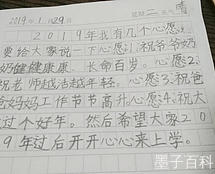 星期二 晴
2019.1.29日
2019年我有几个心愿,
要给大家说一下心愿1:祝爷爷奶
奶健健康康、长命百岁。心愿2:
祝老师越活越年轻。心愿3:祝爸
爸妈妈工作节节高升心愿4:祝大
过个好年。然后希望大家20
9年过后开开心心来上学。
墨子百科